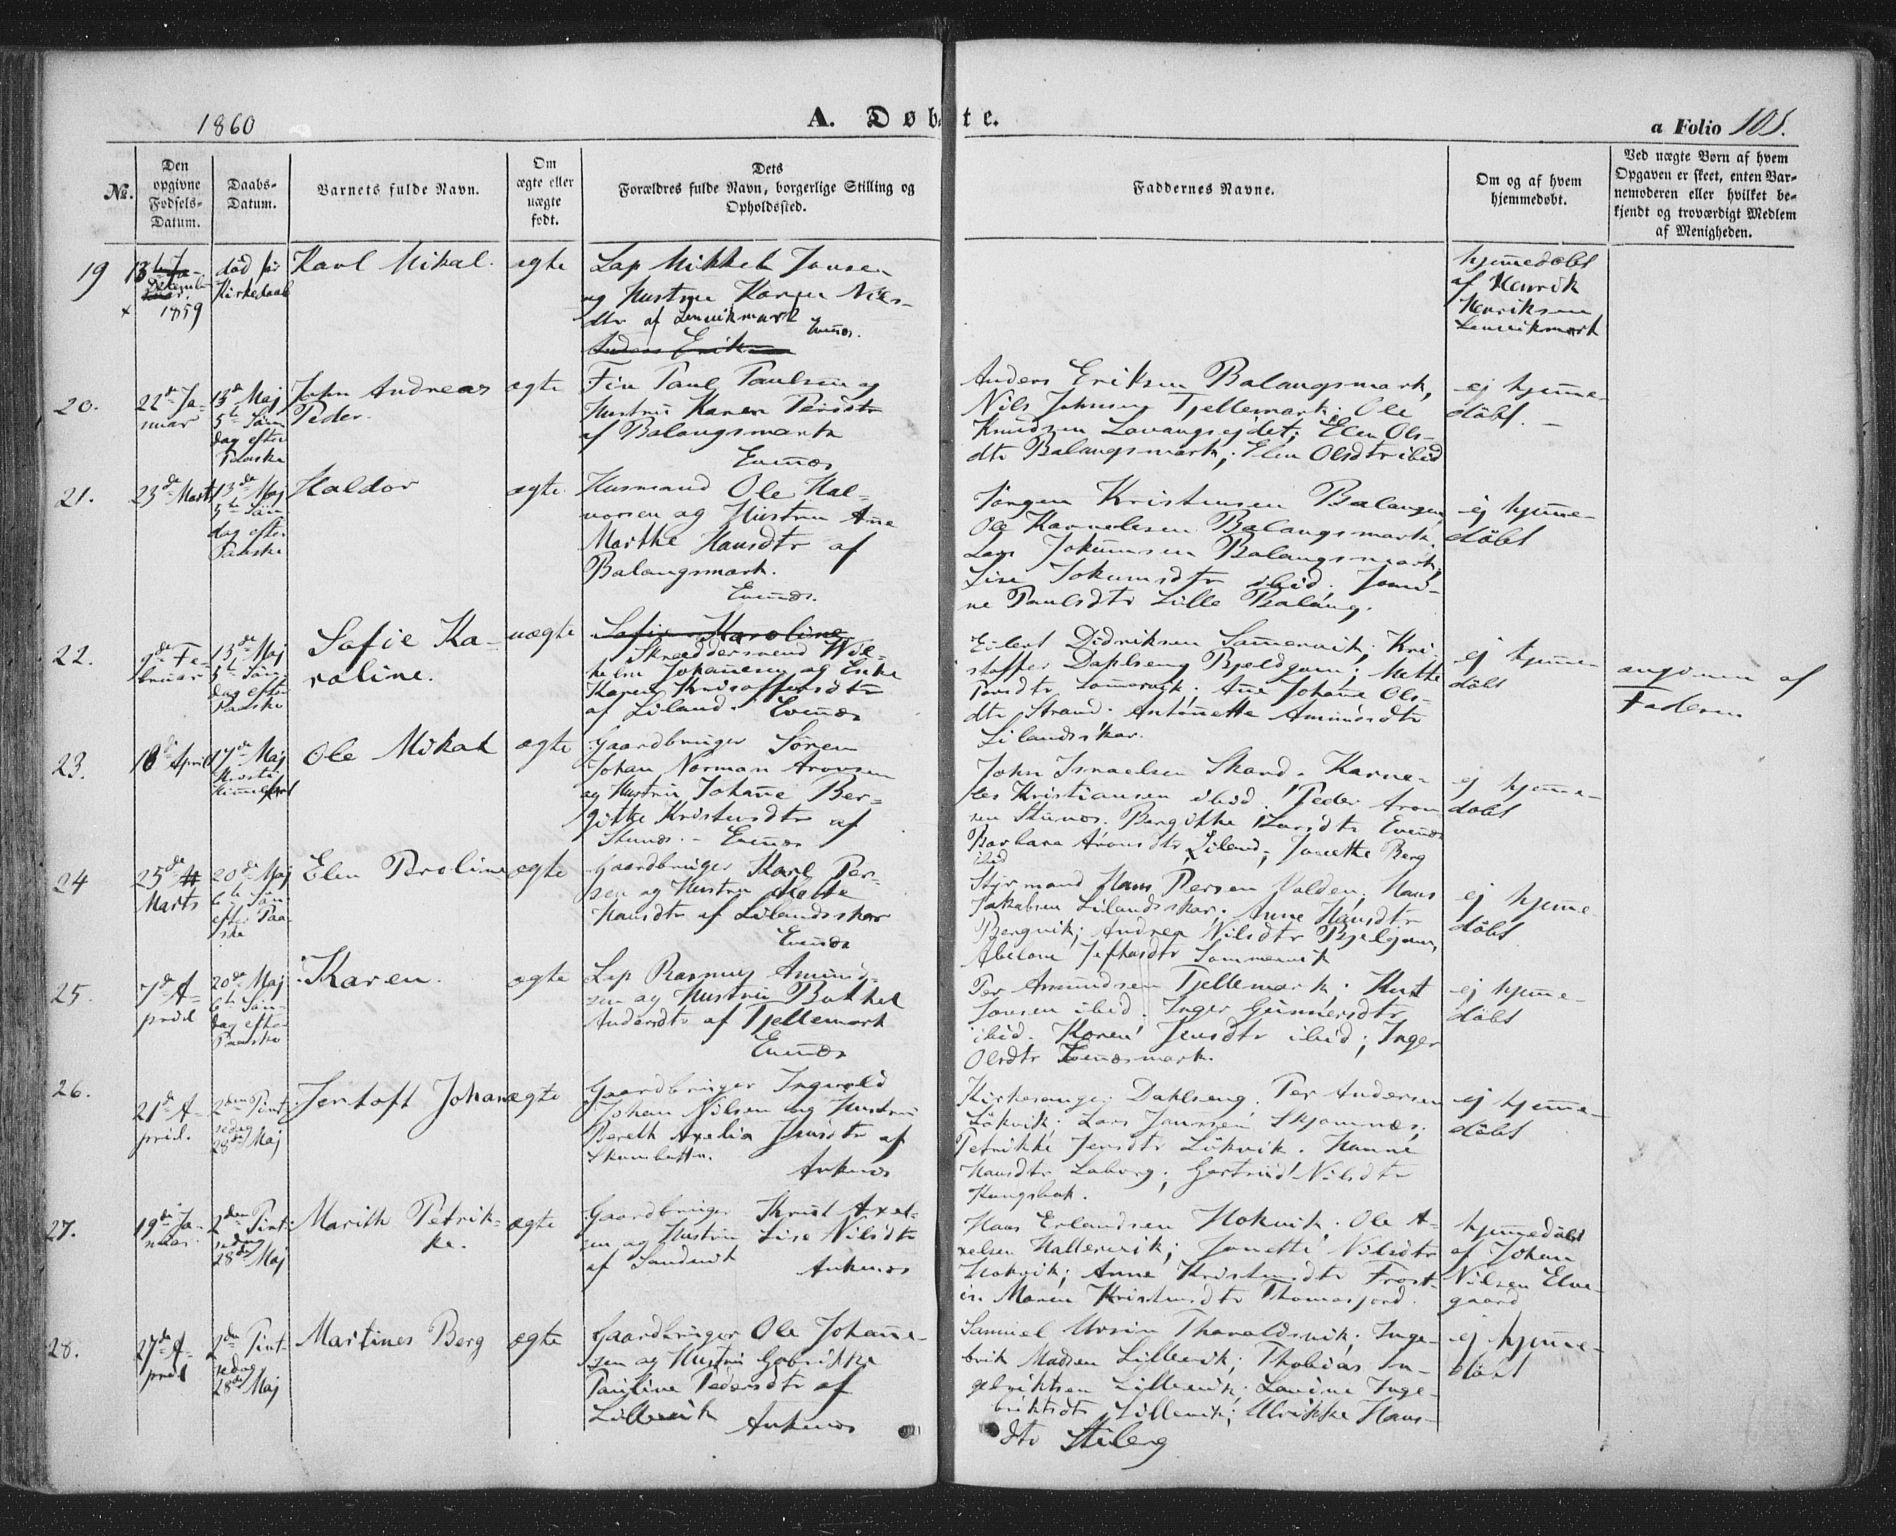 1860
A. Døbte.
a Folio 101.
No.
Den opgivne Fødsels-Datum.
Daabs-Datum.
Barnets fulde Navn.
Om ægte eller uægte født.
Dets Forældres fulde Navn, borgerlige Stilling og Opholdssted.
Faddernes Navne.
Om og af hvem hjemmedøbt.
Ved uægte Børn af hvem Opgaven er skeet, enten Barnemoderen eller hvilket bekjendt og troværdigt Medlem af Menigheden.
19
13
1859
død før
Kirkedaab
Karl Mikal.
ægte
Lap Mikkel Jonsen
og Hustru Karen Nils-
dtr af Lenvikmark
Evenæs.
hjemmedøbt
af Henrik
Henriksen
Lenvikmark
20.
22de Ja-
nuar
13de Maj
5te Søn
dag efter
Paaske
John Andreas
Peder.
ægte
Fin Paul Paulsen og
Hustru Karen Persdtr
af Balangsmark
Evenæs
Anders Eriksen Balangsmark,
Nils Johnsen Tjellemark; Ole
Knudsen Lavangsejdet; Elen Ols-
dtr Balangsmark; Elen Olsdtr ibid
ej hjemme-
døbt.
21.
23de Marts
13de Maj
5te Søn
dag efter
Paaske
Haldor
ægte
Husmand Ole Hal-
vorsen og Hustru Ane
Marthe Hansdtr af
Balangsmark.
Evenæs.
Jørgen Kristensen Balangen
Ole Karnelesen Balangsmark.
Lars Jokumsen Balangsmark;
Lise Jokumsdtr ibid; Joni-
ne Paulsdtr Lille Balang.
ej hjemme-
døbt
22.
9de Fe-
bruar
13de Maj
5te Søn-
dag efter
Paaske
Sofie Ka-
roline.
uægte
Sofie Karoline
Skræddersvend Wil-
helm Johannesen og Enke
Karen Kristoffersdtr
af Liland. Evenæs
Edert Didriksen Sommervik; Kri-
stoffer Dahlseng Bjeldgam; Mette
Sommervik; Ane Johanne Ols-
dtr Strand. Antonette Amundsdtr
Lilandsskar.
ej hjemme
døbt
angiven af
Faderen
23.
18de April
17de Maj
Kristi
Himmelfart
Ole Mikal
ægte
Gaardbruger Søren
Johan Norman Aronsen
og Hustru Johanne Ber-
gitte Kristensdtr af
Stunes. Evenæs
John Israelsen Skard. Karne-
les Kristiansen ibid. Peder Aron
sen Stunes. Bergitte Larsdtr Evenæs
Barbara Aronsdtr Liland; Jonette Berg
ibid
ej hjemme-
døbt
24
25de
Marts
20de Maj
6te Søn
efter Paa-
ske
Elen Peroline
ægte
Gaardbruger Karl Per-
sen og Hustru Mette
Hansdtr af Lilandsskar
Evenæs
Styrmand Hans Persen Valden; Hans
Jakobsen Lilandsskar; Anne Hansdtr
Bergvik; Andrea Nilsdtr Bjelgam,
Abelone Jefthasdtr Sommervik
ej hjemme-
døbt
25.
7de A-
pril
20de Maj
6te Søn-
dag efter
Paaske
Karen.
ægte
Lap Rasmus Amund-
sen og Hustru Bakkel
Andersdtr af Tjellemark
Evenæs
Per Amundsen Tjellemark; Knut
Jonsen ibid. Inger Gunnersdtr
ibid. Karen Jensdtr ibid; Inger
Olsdtr Evenæsmark.
ej hjemme-
døbt
26.
21de A-
pril.
2den Pint-
sedag
28de Maj
Jertoft Johan
ægte
Gaardbruger Ingvold
Johan Nilsen og Hustru
Bereth Axelia Jensdtr af
Ankenæs
Kirkesanger Dahlseng. Per Andersen
Løkvik; Lars Jonssen Skjomnæs;
Petrikke Jensdtr Løkvik. Hanne
Hansdtr Laberg; Gertrud Nilsdtr
ej hjemme-
døbt
27.
19de Ja-
nuar
2den Pint-
sedag
28de Maj
Marith Petrik-
ke.
ægte
Gaardbruger Knut Axel-
sen og Hustru Lise Nilsdtr
af Sandvik
Ankenæs
Haas Erlandsen Hokvik. Ole A-
xelsen Hallervik; Jonette Nilsdtr
Hokvik; Anne Kristensdtr Frost-
is Maren Kristensdtr Thomasjord.
hjemmedøbt
af Johan
Nilsen Elve-
gaard
28.
27de A-
pril
2den Pint-
sedag
28de Maj
Martines Berg
ægte
Gaardbruger Ole Johanne-
sen og Hustru Gabrikke
Pauline Pedersdtr af
Lillevik
Ankenæs
Samuel Ursin Tharaldsvik; Inge-
brik Madsen Lillevik; Thobias In-
gebriktsen Lillevik; Lavine Inge-
briktsdtr Lillevik; Ulrikke Hans-
dtr Stiberg
ej hjemme-
døbt